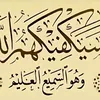 فسيكفيكهم الله
وهو السميع العليم